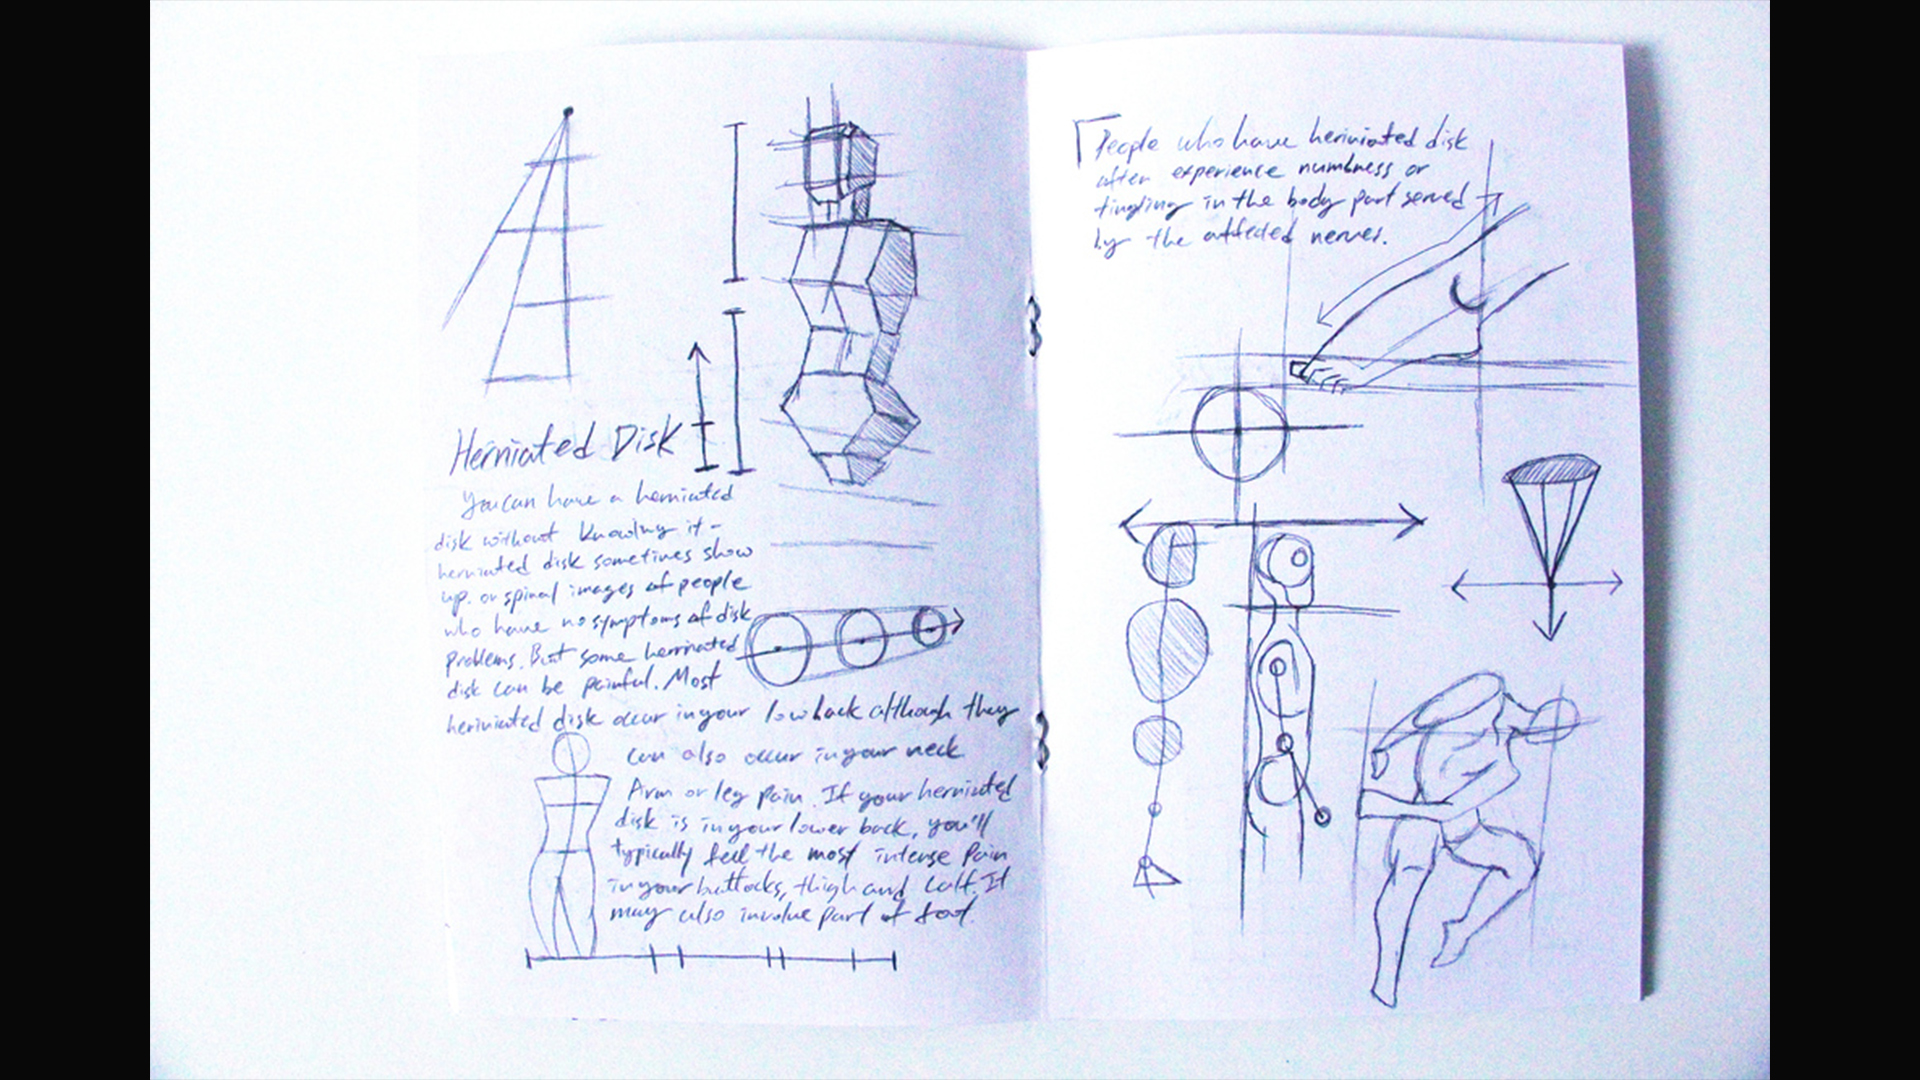 Herniated Disk
You can have a herniated
disk without knowing it -
herniated disk sometimes show
up. or spinal images of people
who have no symptoms of disk
problems. But some herniated
disk can be painful. Most
herniated disk occur in your low back although they
can also occur in your neck
Arm or leg pain. If your herniated
disk is in your lower back, you'll
typically feel the most intense pain
in your buttocks, thigh and calf. It
may also involve part of foot.
People who have herniated disk
often experience numbness or
tingling in the body part served
by the affected nerves.